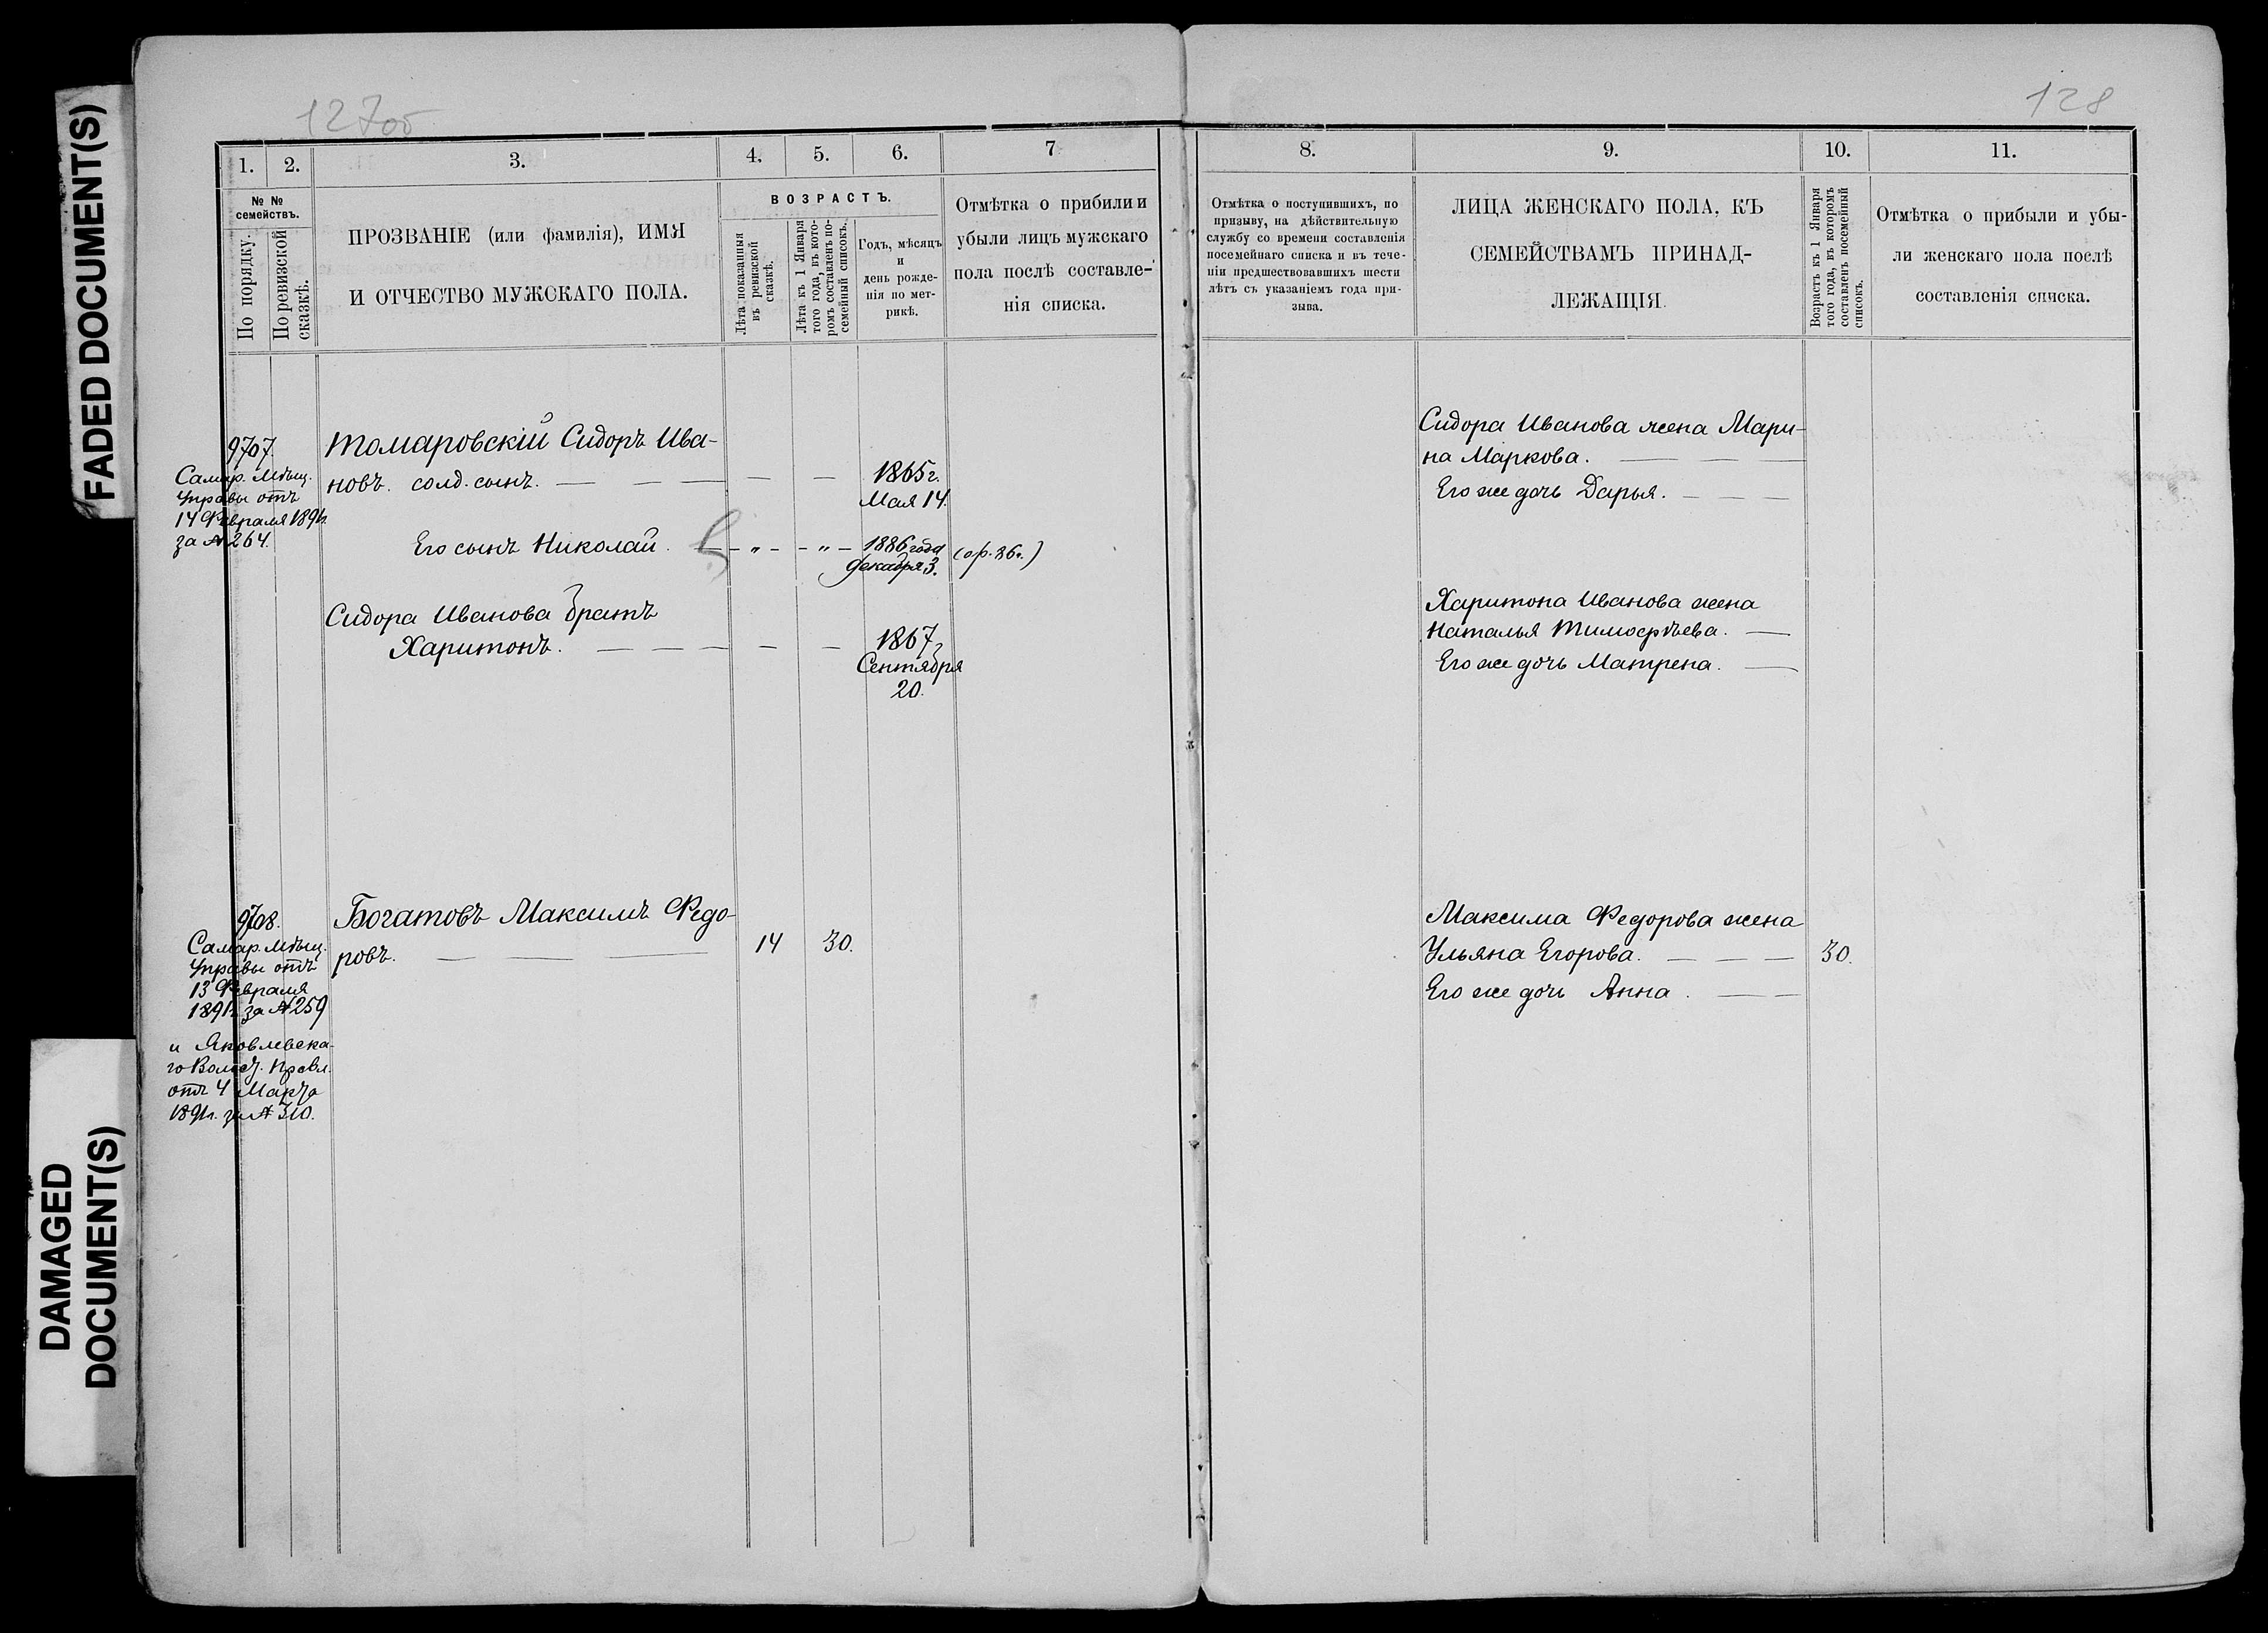 FADED DOCUMENT(S)
DAMAGED
DOCUMENT(S)
127об
1.
2.
3.
4.
5.
6.
7
№ №
семействъ.
По порядку.
По ревизской
сказкѣ.
ПРОЗВАНІЕ (или фамилія), ИМЯ
И ОТЧЕСТВО МУЖСКАГО ПОЛА.
ВОЗРАСТЪ.
Лѣта показанныя
въ ревизской
сказкѣ.
Лѣта къ 1 Января
того года, въ кото-
ромъ составленъ по-
семейный списокъ.
Годъ, мѣсяцъ
и
день рожде-
нія по мет-
рикѣ.
Отмѣтка о прибили и
убыли лицъ мужскаго
пола послѣ составле-
нія списка.
9707.
Самар. Мѣщ.
Управы отъ
14 Февраля 1891г.
за № 264.
Томаровскій Сидоръ Ива-
новъ. солд. сынъ. — — — — —
1865г.
Мая 14.
Его сынъ Николай. — - „ - - „ -
1886 года
декабря 3.
(ор. 86г.)
Сидора Иванова братъ
Харитонъ. — — — — —
1867г
Сентября
20.
9708.
Самар. Мѣщ.
Управы отъ
13 Февраля
1891г. за № 259
и Яковлевска-
го Волост. Правл.
отъ 4 Марта
1891г. за № 310.
Богатовъ Максимъ Федо-
ровъ. — — — 14 30.
128
8.
9.
10.
11.
Отмѣтка о поступившихъ, по
призыву, на дѣйствительную
службу со времени составленія
посемейнаго списка и въ тече-
ніи предшествовавшихъ шести
лѣтъ съ указаніемъ года при-
зыва.
ЛИЦА ЖЕНСКАГО ПОЛА, КЪ
СЕМЕЙСТВАМЪ ПРИНАД-
ЛЕЖАЩІЯ.
Возрастъ къ 1 Января
того года, въ которомъ
составленъ посемейный
списокъ.
Отмѣтка о прибыли и убы-
ли женскаго пола послѣ
составленія списка.
Сидора Иванова жена Мари-
на Маркова. — — —
Его же дочь Дарья. — — —
Харитона Иванова жена
Наталья Тимофѣева. —
Его же дочь Матрена. —
Максима Федорова жена
Ульяна Егорова. — — — 30.
Его же дочь Анна. — —